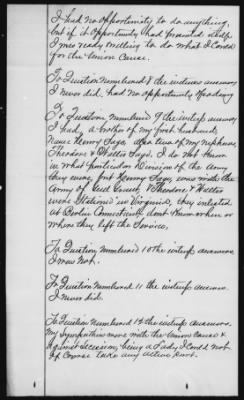 I had no opportunity to do anything,
but if it opportunity had presented itself
I was ready willing to do what I could
for the Union Cause.
To Question Numbered 8 the witness answers
I never did, had no opportunity of so doing
To Question Numbered 9 the witness answers
I had a brother of my first husband,
Name Henry Sago, also two of my nephews
Theodore & Walter Sago. I do not know
in what particular Division of the Army
they were, but Henry Sago, was with the
Army of Genl Grant, & Theodore & Walter
were Stationed in Virginia, they enlisted
at Connecticut dont know when or
where they left the Service.
To Question Numbered 10 the witness answers
I was not.
To Question Numbered 11 the witness answers
I never did.
To Question Numbered 12 the witness answers.
My Sympathies were with the Union Cause &
against Secession, being a Lady I Could not
of Course take any active part.